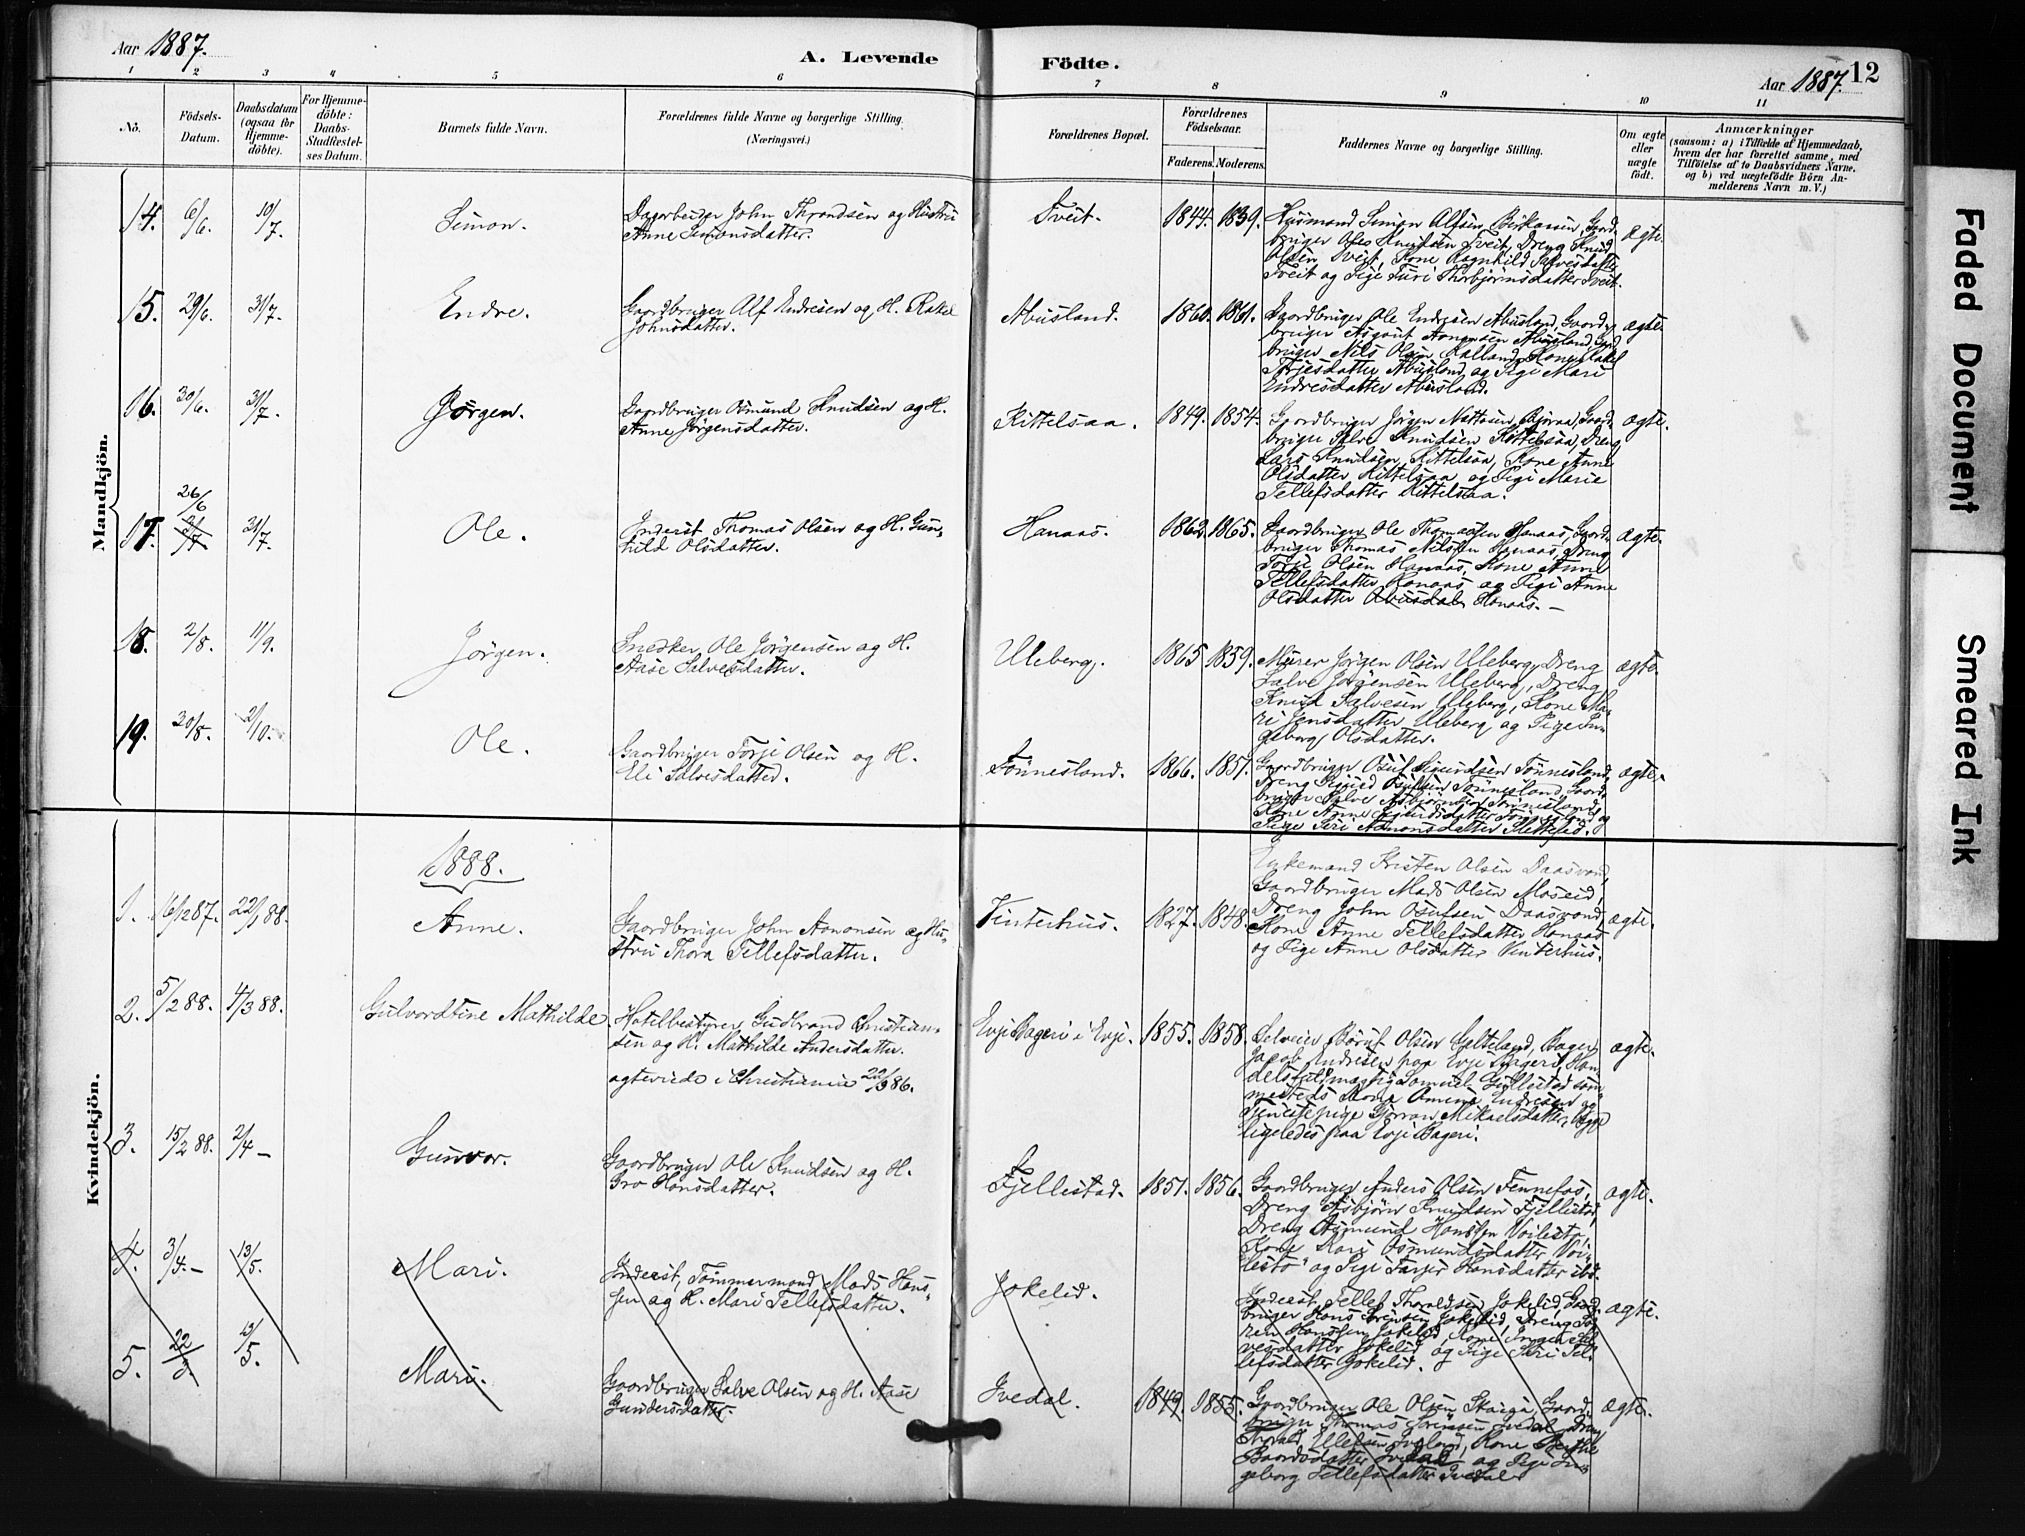 Aar 1887.
A. Levende Födte.
Aar 1887. 12
1 2 3 4 5 6 7 8 9 10 11
No.
Födsels-
Datum.
Daabsdatum
(ogsaa for
Hjemme-
döbte).
For Hjemme-
döbte:
Daabs-
Stadfæstel-
ses Datum.
Barnets fulde Navn.
Forældrenes fulde Navne og borgerlige Stilling.
(Næringsvei.)
Forældrenes Bopæl.
Forældrenes
Födselsaar.
Faderens. Moderens.
Faddernes Navne og borgerlige Stilling.
Om ægte
eller
uægte
födt.
Anmærkninger
(saasom: a) i Tilfælde af Hjemmedaab,
hvem der har forrettet samme, med
Tilföielse af to Daabsvidners Navne.
og b) ved uægtefödte Börn An-
melderens Navn m. V.)
Mandkjön.
14. 6/6. 10/7. Simon.
Dagarbeider John Throndsen og Hustru
Anne Simonsdatter.
Tveit. 1844. 1839.
Husmand Simon Alfsen Birkaasen, Gaard-
bruger Oles Knutsen Tveit, Dreng Knud
Olsen Tveit, Kone Ragnhild Salvesdatter
Tveit og Pige Turi Thorbjörnsdatter Tveit.
ægte.
15. 29/6. 31/7. Endre.
Gaardbruger Alf Endresen og H. Rakel
Johnsdatter.
Abusland. 1860. 1861.
Gaardbruger Ole Endresen Abusland, Gaard-
bruger Asgout Aanonsen Abusland, Gaard-
bruger Nils Olsen Kalland, Kone Rakel
Torjesdatter Abusland og Pige Mari
Endresdatter Abusland.
ægte
16. 30/6. 31/7. Jörgen.
Gaardbruger Osmund Knudsen og H.
Anne Jörgensdatter.
Kittelsaa. 1849. 1854.
Gaardbruger Jörgen Mattssen Bjoraa, Gaard-
bruger Salve Knudsen Kittelsaa, Dreng
Lars Knudsen Kittelsaa, Kone Anne
Olsdatter Kittelsaa og Pige Marie
Tellefsdatter Kittelsaa.
ægte.
26/6
17. 2/7 31/7. Ole.
Inderst Thomas Olsen og H. Gun-
hild Olsdatter.
Hanaas. 1862. 1865.
Gaardbruger Ole Thomassen Hanaas, Gaard-
bruger Thomas Nilssen Hanaas, Dreng
Torje Olsen Hanaas, Kone Anne
Tellefsdatter Hanaas og Pige Anne
Olsdatter Abusdal Hanaas. —
ægte.
18. 2/8. 11/9. Jörgen.
Snedker Ole Jörgensen og H.
Aase Salvesdatter.
Uleberg. 1865 1859.
Murer Jörgen Olsen Uleberg, Dreng
Salve Jörgensen Uleberg, Dreng
Knud Salvesen Uleberg, Kone Ma-
ri Jensdatter Uleberg og Pige In-
geborg Olsdatter.
ægte.
19. 20/8. 2/10. Ole.
Gaardbruger Torje Olsen og H.
Eli Salvesdatter.
Tönnesland. 1866. 1857.
Gaardbruger Osuf Sigurdsen Tönnesland,
Dreng Sigurd Osufsen Tönnesland, Gaard-
bruger Salve Asbjörnsen Tönnesland,
Kone Anne Sigurdsdatter Tönnesland og
Pige Siri Aanonsdatter
ægte.
Kvindekjön.
1888.
1. 16/12 87. 22/1 88. Anne.
Gaardbruger John Aanonsen og Hu-
stru Thora Tellefsdatter.
Vinterhus. 1827. 1848.
Enkemand Kristen Olsen Daasvand,
Gaardbruger Mads Olsen Moseid,
Dreng John Osufsen Daasvand,
Kone Anne Tellefsdatter Hanaas
og Pige Anne Olsdatter Vinterhus.
ægte.
2. 5/2 88. 4/3 88. Gulvordtine Mathilde.
Hotelbestyrer Gudbrand Christian-
sen og H. Mathilde Andersdatter.
ægteviede i Christiania 22/9 86.
Evje Bageri i Evje. 1855. 1858.
Selveier Böruf Olsen Galteland, Bager
Jacob Endresen paa Evje Bageri, Han-
delsfuldmægtig Samuel Gullestad sam-
mesteds, Kone Amine Endresen og
Tjenestepige Gjoran Mikaelsdatter,
ligeledes paa Evje Bageri.
ægte.
3. 15/2 88. 2/4 — Gunvor.
Gaardbruger Ole Knudsen og H.
Gro Hansdatter.
Fjellestad. 1851. 1856.
Gaardbruger Anders Olsen Fennefos,
Dreng Asbjörn Knudsen Fjellestad,
Dreng Asmund Hanssen Voilestö,
Kone Kari Osmundsdatter Voi-
lestö og Pige Torjer Hansdatter ibd.
ægte.
4. 3/4. — 13/5. Mari.
Inderst, Tömmermand Mads Hans-
sen og H. Mari Tellefsdatter.
Jokelid.
Inderst Tellef Thoraldsen Jokelid, Gaard-
bruger Hans Sörensen Jokelid, Dreng Sö-
ren Hanssen Jokelid, Kone Inger Sal-
vesdatter Jokelid og Pige Siri Tel-
lefsdatter Jokelid.
ægte.
5. 22/3. 12/5. Mari.
Gaardbruger Salve Olsen og H. Aase
Gundersdatter.
Ivedal. 1849. 1855.
Gaardbruger Ole Olsen Skaiaa, Gaard-
bruger Thomas Ivedal, Dreng
Thorald Ivedal, Kone Berthe
Baardsdatter Ivedal og Pige In-
geborg Tellefsdatter Ivedal
ægte.
Faded Document
Smeared Ink